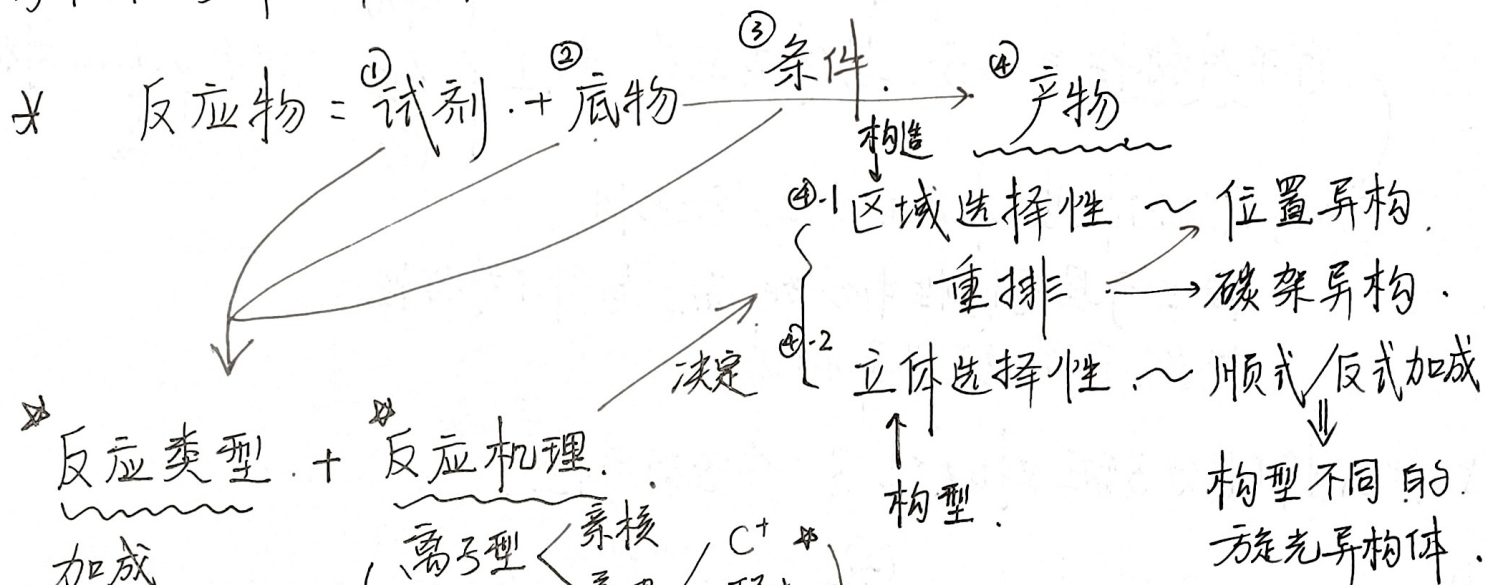 反应物 = ①试剂 . + ②底物 ③条件. → ④产物
构造
④-1 区域选择性 ~ 位置异构.
重排 → 碳架异构.
决定
④-2 立体选择性. ~ 顺式/反式加成
构型.
构型不同的
旋光异构体.
反应类型. + 反应机理.
加成
离子型 < 亲核
C⁺